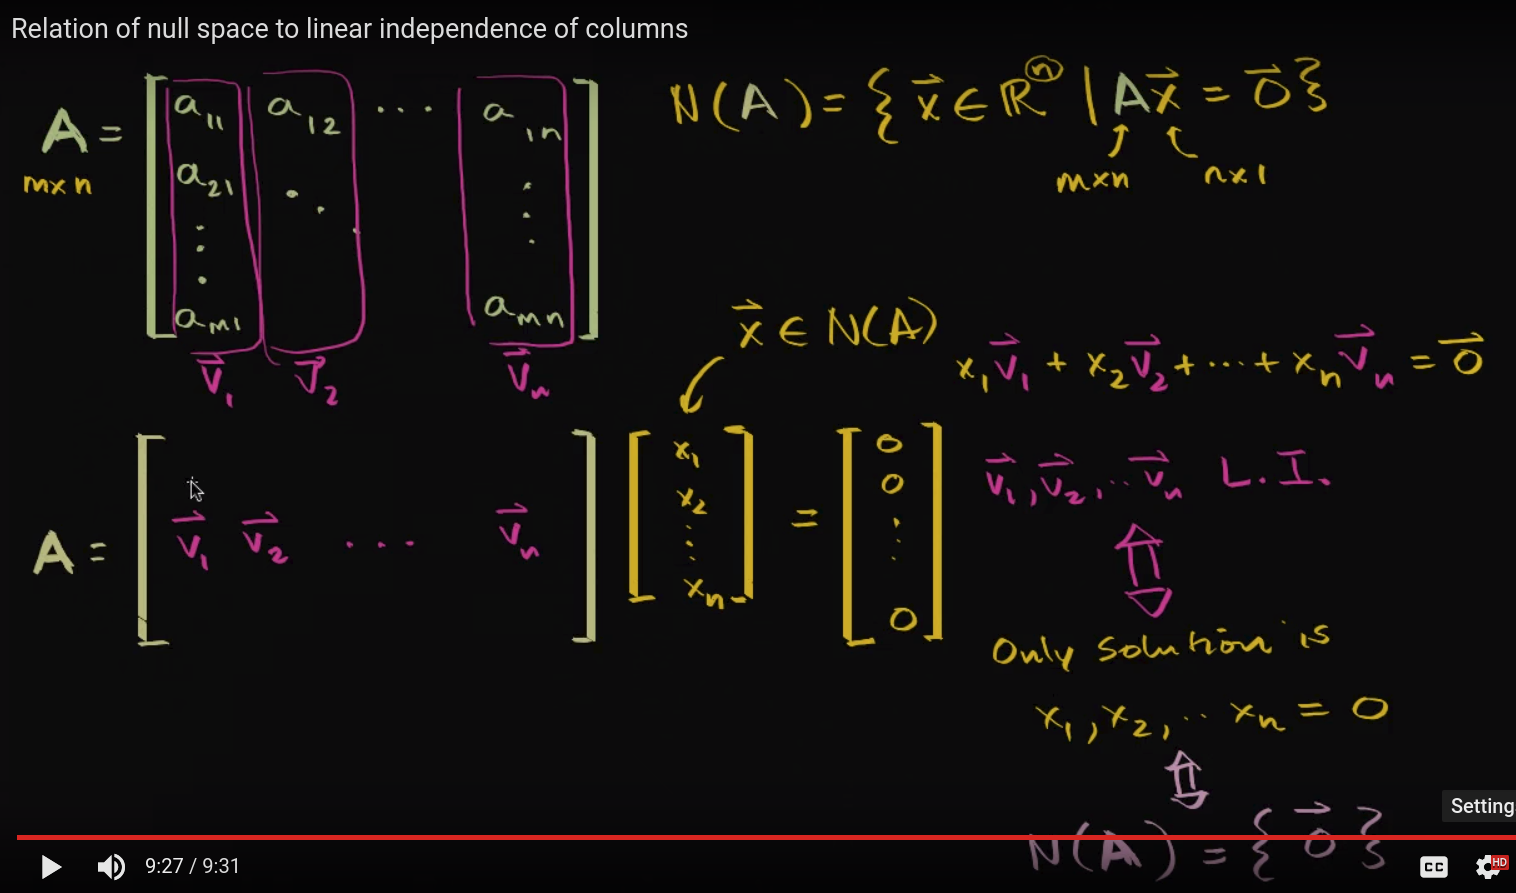 Relation of null space to linear independence of columns
A = [ a11 a12 ... a1n
m×n
a21 ⋱ ⋮
⋮
am1 amn ]
v⃗1 v⃗2 v⃗n
N(A) = { x⃗ ∈ ℝⁿ | Ax⃗ = 0⃗ }
m×n n×1
x⃗ ∈ N(A)
x1v⃗1 + x2v⃗2 + ... + xnv⃗n = 0⃗
A = [ v⃗1 v⃗2 ... v⃗n ] [ x1 x2 ⋮ xn ] = [ 0 0 ⋮ 0 ]
v⃗1, v⃗2, ... v⃗n L.I.
⇕
Only solution is
x1, x2, ... xn = 0
⇕
N(A) = { 0⃗ }
Setting
9:27 / 9:31
CC
HD